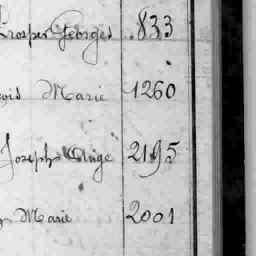 Prosper Georges 833
Marie 1260
Joseph Ange 2195
Marie 2001